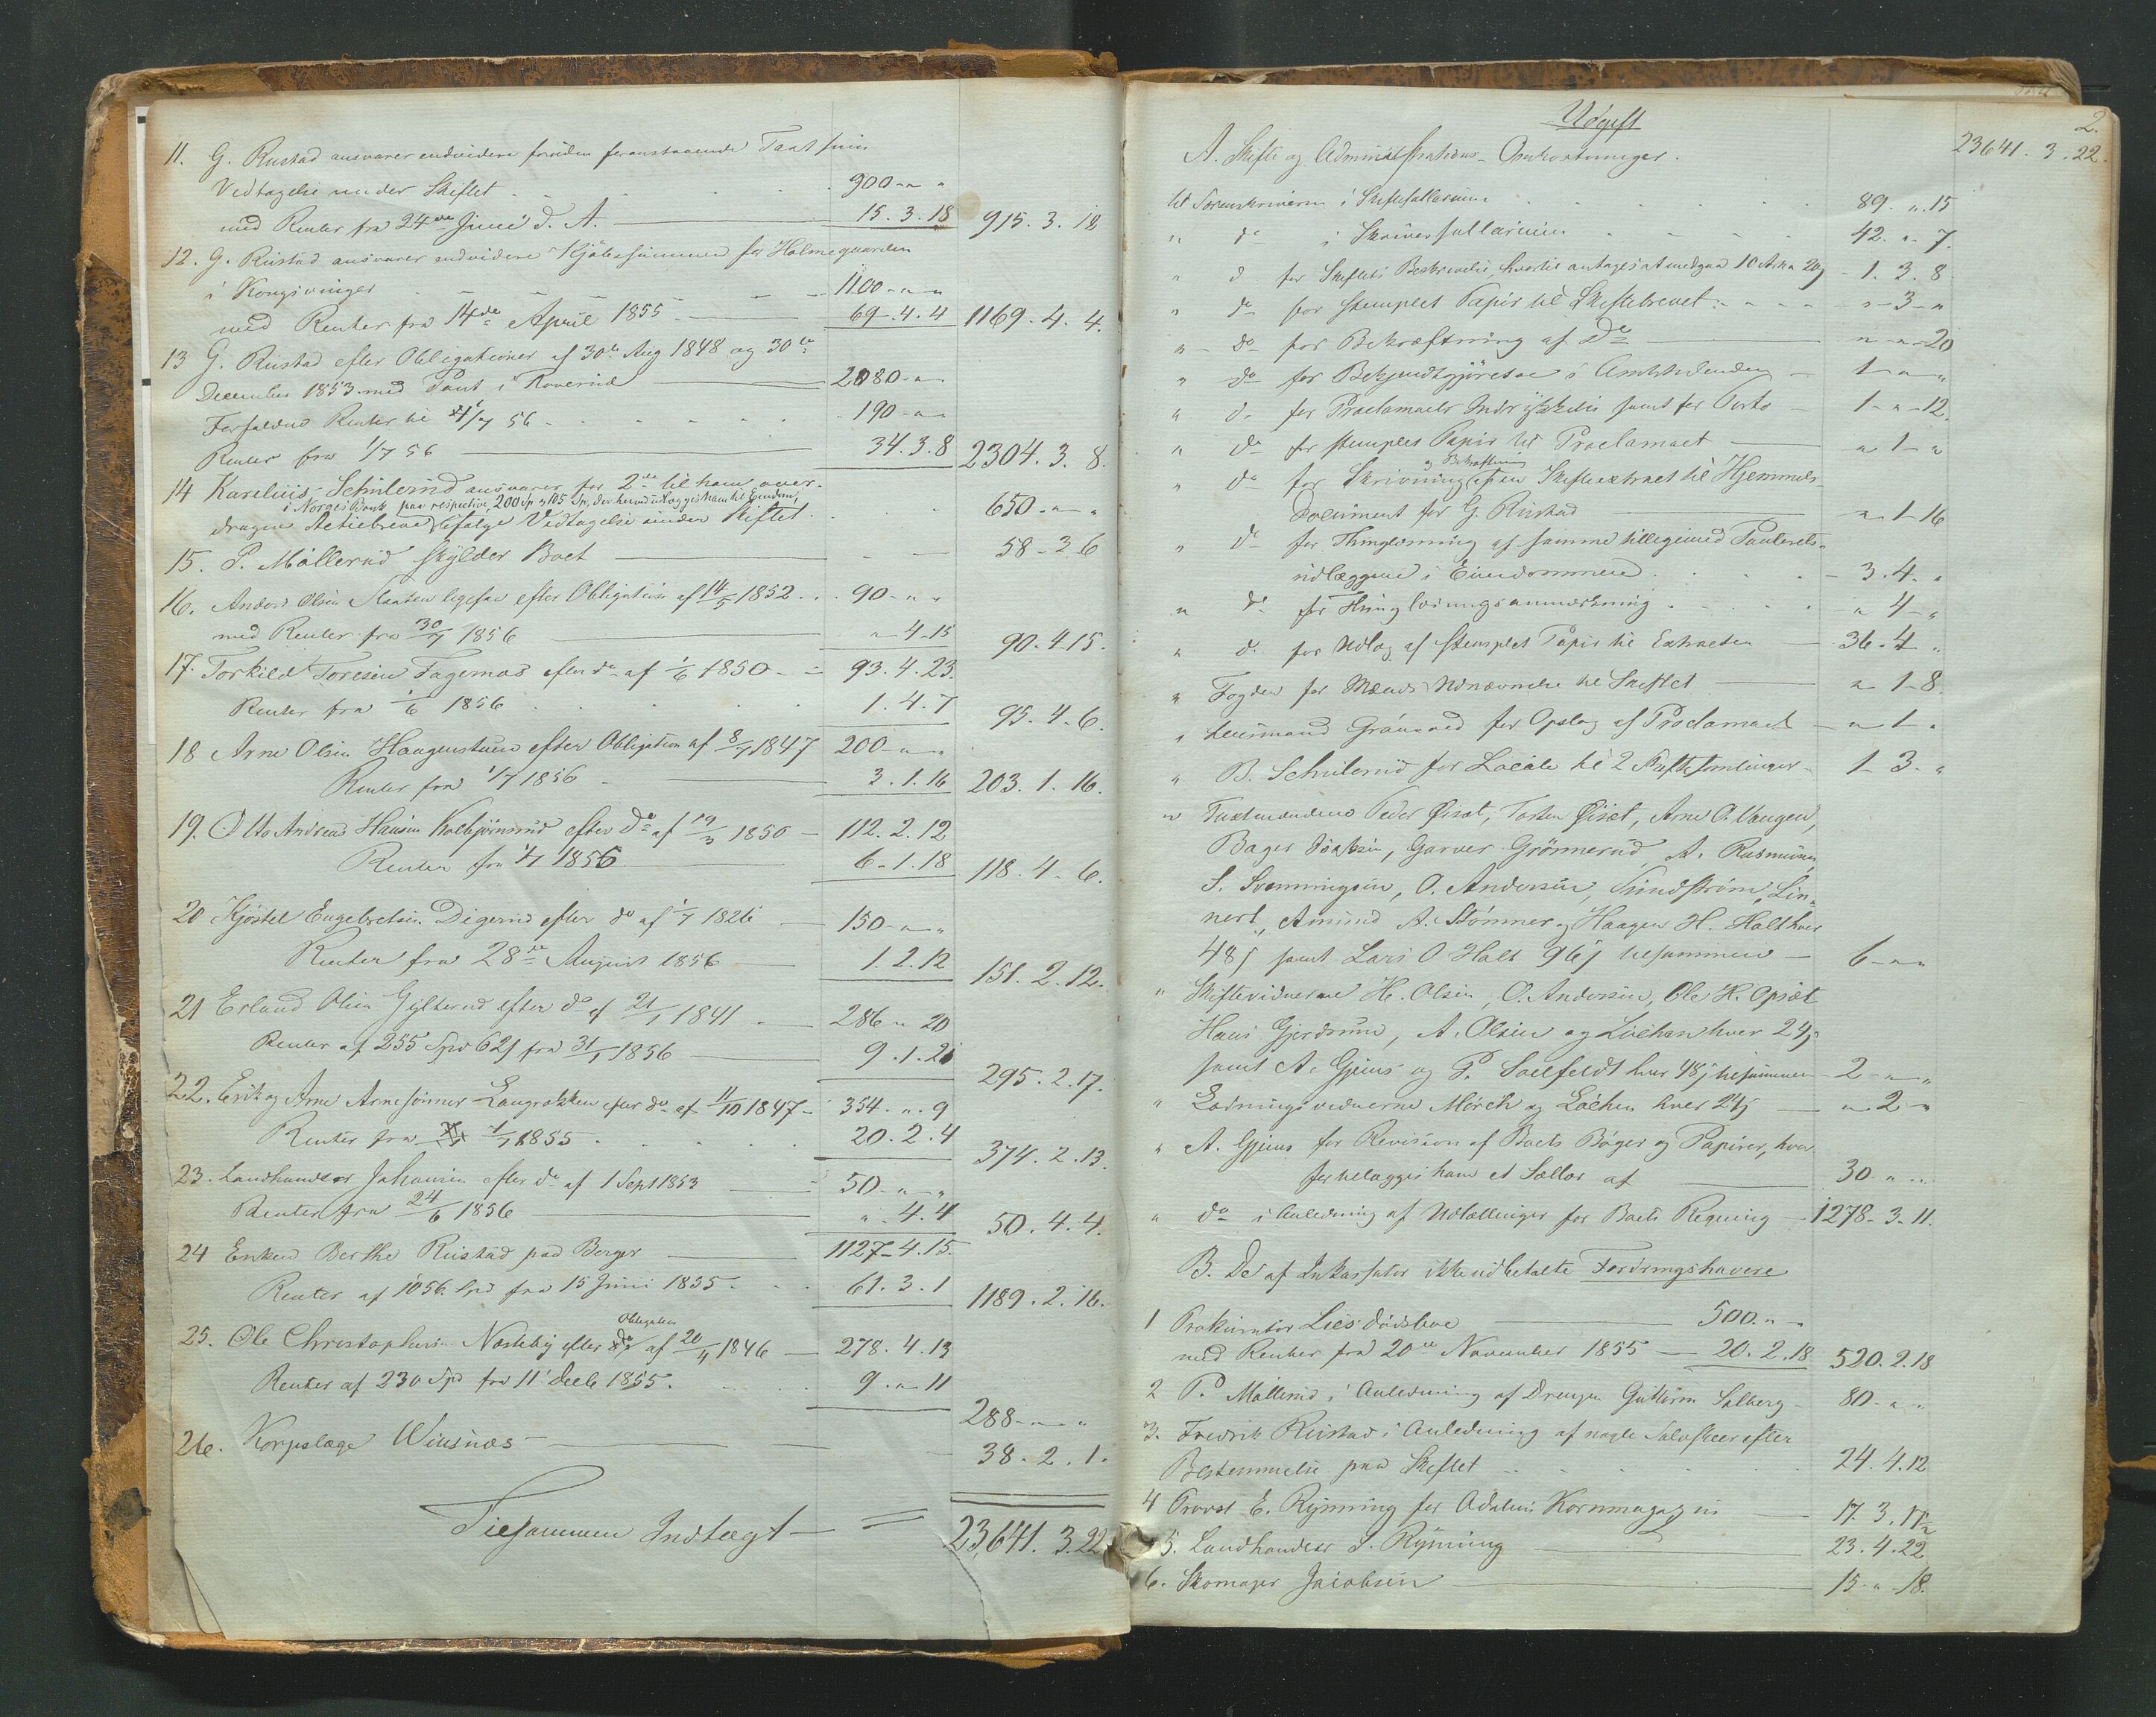 11. G. Rustad ansvarer endvidere foruden foranstaaende Taxt sin
Vedtagelse under Skiftet . . . 900 - " "
med Renter fra 24de Juni d. A. — 15. 3. 18 915. 3. 18
12. G. Rustad ansvarer endvidere Kjøbesummen for Holmegaarden
i Kongsvinger - - - 1100 - " - "
med Renter fra 14de April 1855 — 69. 4. 4 1169. 4. 4.
13 G. Rustad efter Obligationer af 30te Aug 1848 og 30te
December 1853 med Pant i Roverud — 2080 - " -
Forfaldne Renter til 1/7 56 - - - 190 - " -
Renter fra 1/7 56 — 34. 3. 8 2304. 3. 8.
14 Karelius Schulerud ansvarer for 2de til ham over-
i Norges Bank paa respective 200 Sp og 105 Sp, der
dragne Actiebreve ifølge Vedtagelse under Skiftet . . . 650 - " - "
15. P. Møllerud skylder Boet — 58 - 3. 6
16. Anders Olsen ligesaa efter Obligation af 14/5 1852 . . 90 - " "
med Renter fra 30/7 1856 — " - 4. 15 90. 4. 15.
17. Torkild Toresen Fagernæs efter do af 1/6 1850 - - 93. 4. 23.
Renter fra 1/6 1856 . . . 1. 4. 7 95. 4. 6.
18 Arne Olsen Haugerstuen efter Obligation af 8/7 1847 200 - " - "
Renter fra 1/7 1856 - — 3. 1. 16 203. 1. 16.
19. Otto Andreas Hansen Kolbjørnsrud efter do af 19/3 1850 — 112. 2. 12
Renter fra 1/7 1856 — 6 - 1. 18 118. 4. 6.
20 Kjøstel Engebretsen Digerud efter do af 1/7 1826 — 150 - " - "
Renter fra 28de August 1856 — 1. 2. 12 151. 2. 12.
21 Erland Olsen Gylterud efter do af 21/1 1841 - — 286 " 20
Renter af 255 Spd 62 s fra 31/1 1856 — 9. 1. 21 295. 2. 17.
22. Erik og Arne Arnesønner Langrækken efter do af 11/10 1847 - 354. " 9
Renter fra 1/1 1855 . . . 20. 2. 4 374. 2. 13.
23. Landhandler Johansen efter do af 1 Sept 1853 — 50 - " - "
Renter fra 24/6 1856 — " . 4. 4 50. 4. 4.
24 Enken Berthe Rustad paa Berger — 1127 - 4. 15
Renter af 1056 Spd fra 15 Juni 1855 . . . 61. 3. 1 1189. 2. 16.
Obligation
25. Ole Christophersen Nosteby efter do af 20/4 1846 — 278. 4. 13
Renter af 230 Spd fra 11 Decb 1855 . . . 9. " 11
288 - " - "
26. Korpslæge Winsnæs — 38. 2. 1.
Tilsammen Indtægt — = 23,641. 3. 22
2.
Udgift
A. Skifte og Administrations-Omkostninger. 23641. 3. 22.
til Sorenskriveren i Skiftesallarium . . . 89. " . 15
" do i Skriversallarium - - - 42. " - 7.
" do for Skiftets Beskrivelse, hvortil antages at medgaa 10 Ark a 20 s - 1. 3. 8
" do for stemplet Papir til Skiftebrevet . . . " - 3 - "
" do for Bekræftning af Do — " - " - 20
" do for Bekjendtgjørelse i Amtstidenden — 1 - " - "
" do for Proclamaets Indrykkelse samt for Porto — 1 - " - 12.
" do for stemplet Papir til Proclamaet — " 1 - "
og Bekræftning
" do for Skrivning af en Skifteextract til Hjemmels-
Document for G. Rustad — " - 1 - 16
" do for Thinglæsning af samme tilligemed Panterets-
udlæggene i Eiendommene . . . - 3. 4. "
" do for Thinglæsningsanmærkning . . . " 4 - "
" do for Udlæg af stemplet Papir til Extracten — 36. 4 - "
" Fogden for Mænds Udnævnelse til Skiftet — " 1 - 8
" Lensmand Grønnerud for Opslag af Proclamaet — " 1 - "
" B. Schulerud for Locale til 2 Skiftesamlinger - 1 - 3 - "
" Taxtmændene Peder Øiset, Tosten Øiset, Arne O. Vangen,
Bager Isaksen, Garver Grønnerud, A. Rasmusen
S. Svenningsen, O. Andersen, Lundstrøm, Lin-
nert, Amund A. Stømner og Haagen H. Holt hver
48 s samt Lars O Holt 96 s tilsammen — 6 - " - "
" Skiftevidnerne H. Olsen, O. Andersen, Ole H. Opsæt
Hans Gjerdrum, A. Olsen og Løchen hver 24 s
samt A. Gjems og P. Soelfeldt hver 48 s tilsammen - 2 - " - "
" Lodningsvidnerne Mørch og Løchen hver 24 s — " 2 - "
" A. Gjems for Revision af Boets Bøger og Papirer, hvor
for tillægges ham et Sallar af — 30. " . "
" do i Anledning af Udtællinger for Boets Regning - 1278 - 3. 11.
B. De af Inkassator ikke udbetalte Fordringshavere
1 Prokurator Lies Dødsboe — 500. " -
med Renter fra 20de November 1855 — 20. 2. 18 520. 2. 18
2 P. Møllerud i Anledning af Drengen Guttorm Solberg - 80 - " - "
3. Fredrik Rustad i Anledning af nogle Sølvskeer efter
Bestemmelse paa Skiftet . . . 24. 4. 12
4 Provst E. Rynning for Aadalens Kornmagazin — 17. 3. 11½
5. Landhandler S. Rynning — 23. 4. 22
6. Skomager Jacobsen — 15 - " - 18.